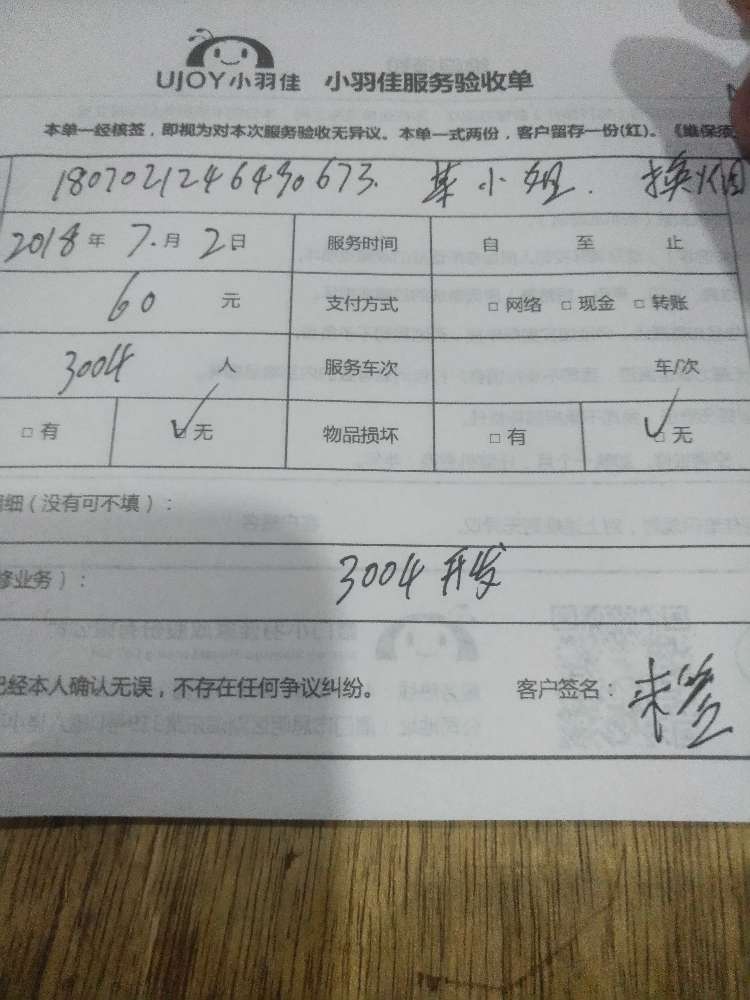 UJOY小羽佳 小羽佳服务验收单
本单一经核签，即视为对本次服务验收无异议。本单一式两份，客户留存一份(红)。《维保须
1807021246490673. 小姐. 换
2018年 7.月 2日 服务时间 自 至 止
60 元 支付方式 □ 网络 □ 现金 □ 转账
3004 人 服务车次 车/次
□ 有 □ 无 物品损坏 □ 有 □ 无
细（没有可不填）：
修业务）： 3004 开发
已经本人确认无误，不存在任何争议纠纷。 客户签名： 未签